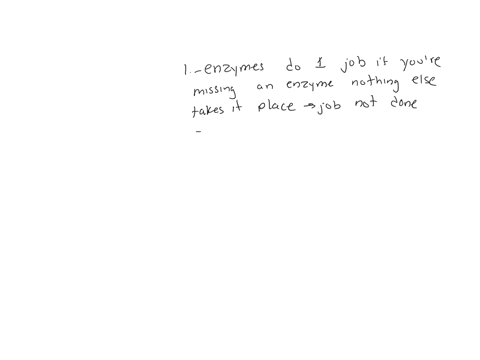 1. - enzymes do 1 job if you're
missing an enzyme nothing else
takes it place → job not done
-